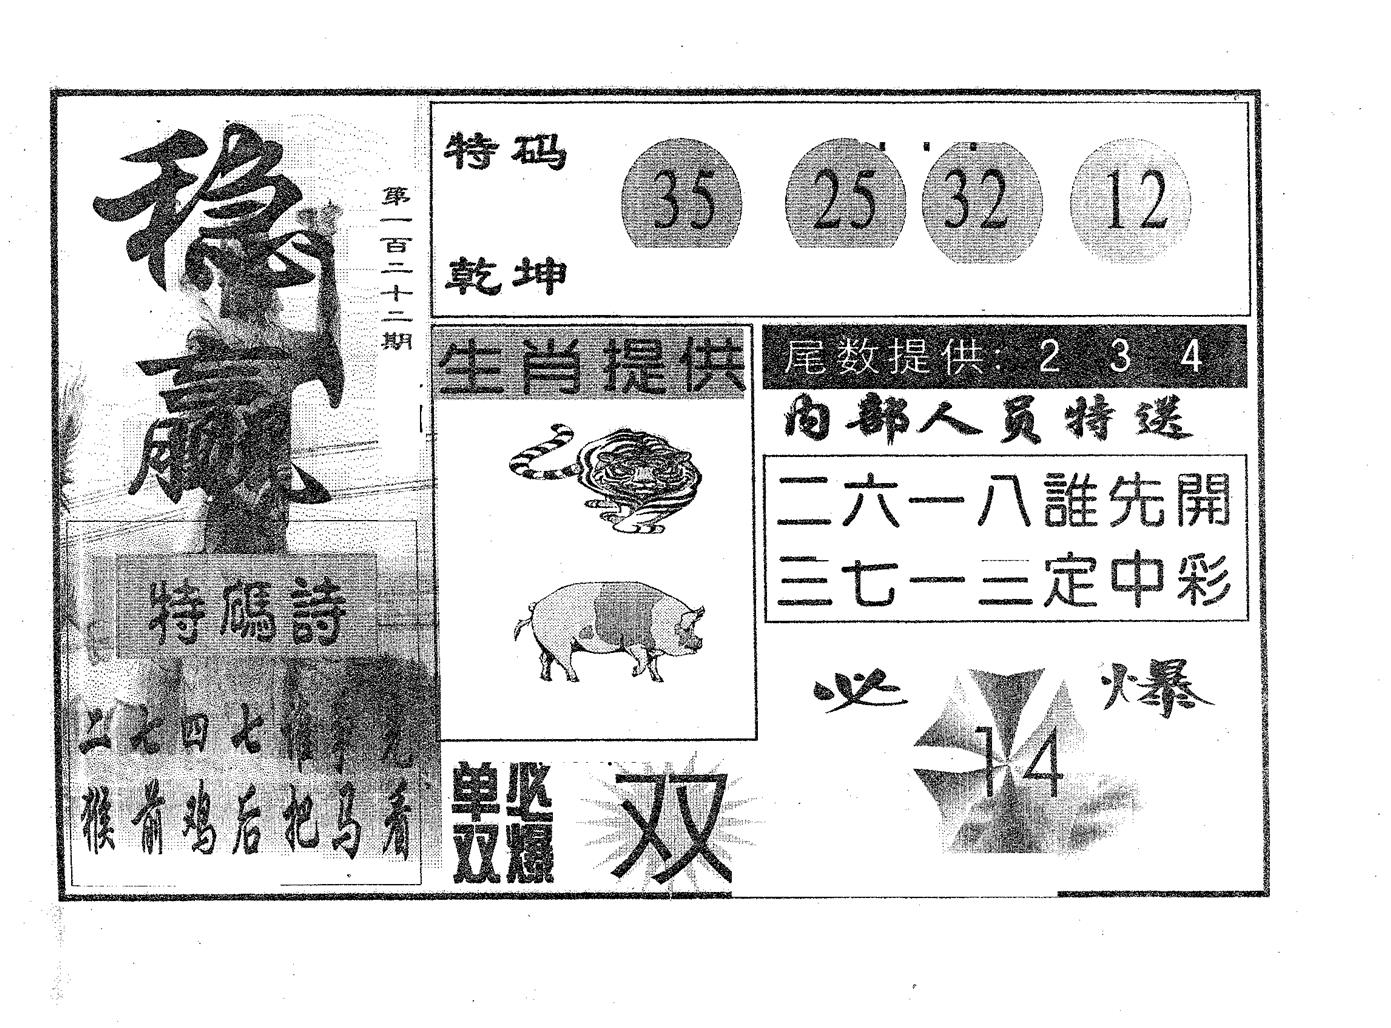 稳赢
第一百二十二期
特码
35 25 32 12
乾坤
生肖提供
尾数提供: 2 3 4
内部人员特送
二六一八誰先開
三七一三定中彩
特碼詩
二七四七谁
猴前鸡后把马看
必爆
14
单双必爆
双